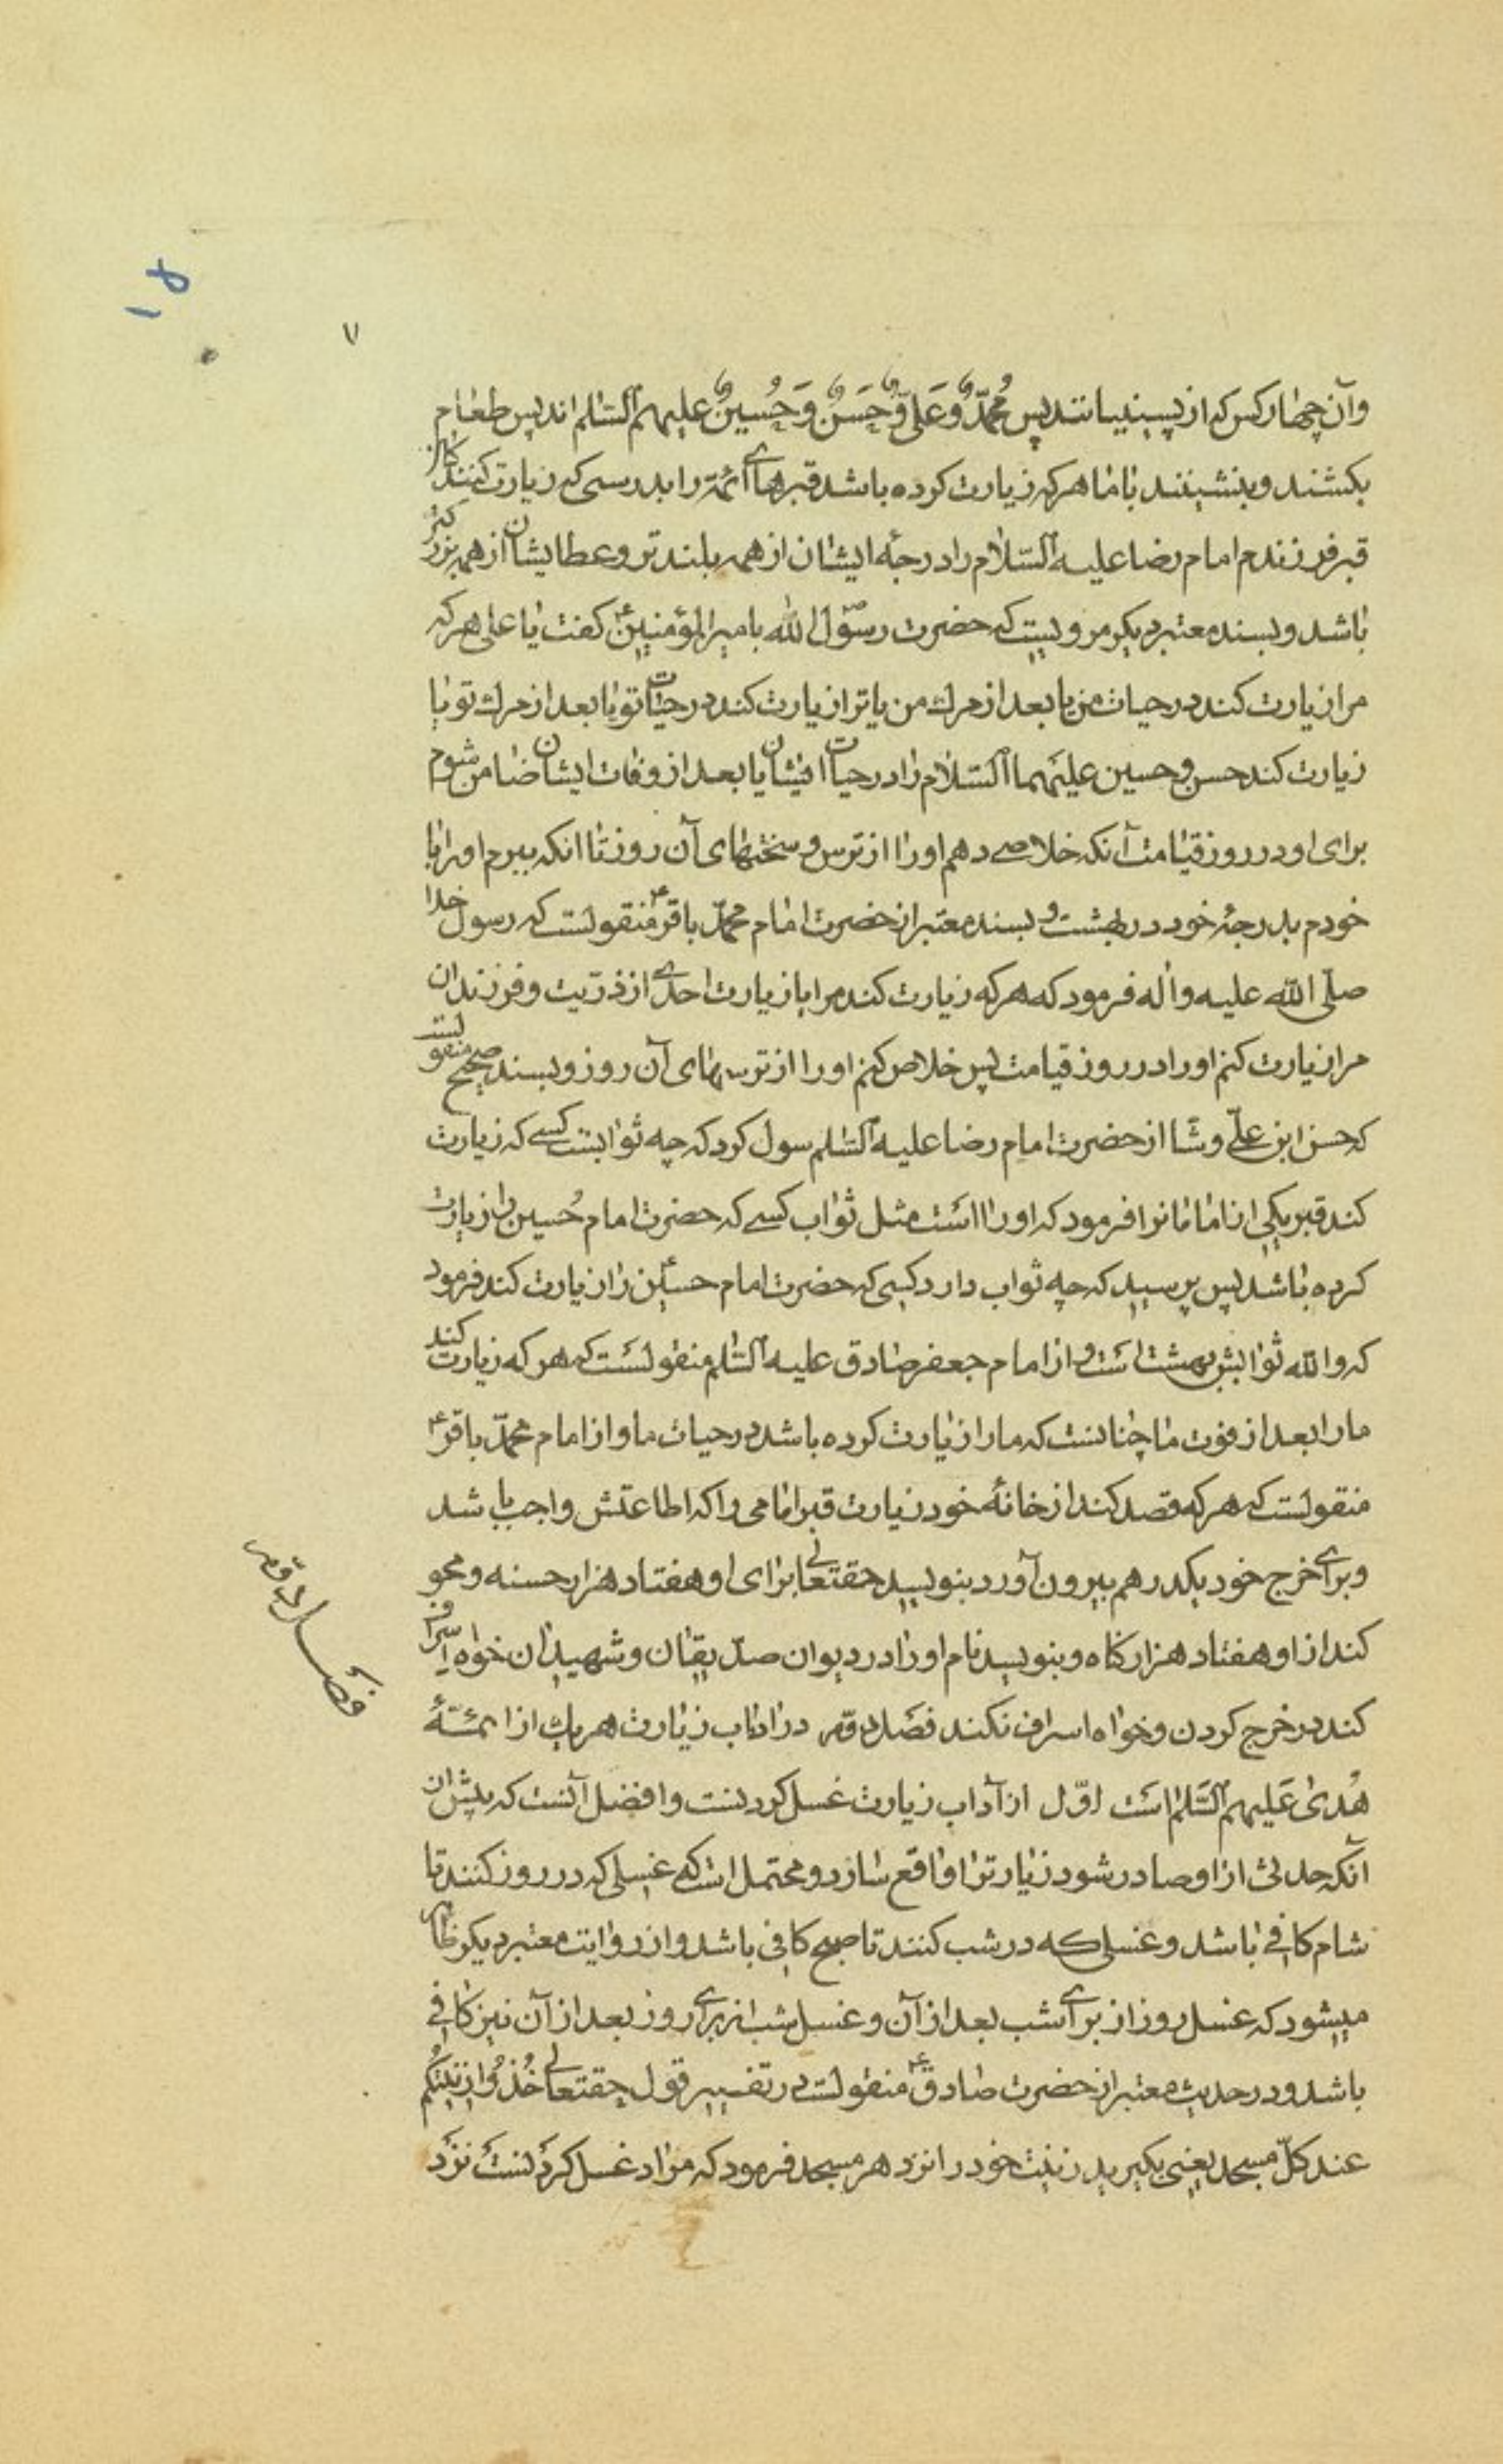 ۱۸
۱۱
وآن چهار کس که از پسینیانند پس مُحمّدٌ وَعَلیٌّ وَحَسَنٌ وَحُسینٌ علیهم السّلم اند پس طعام
بکشند و بنشینند باما هرکه زیارت کرده باشد قبرهای ائمّه را بدرستی که زیارت کنندکان
قبر فرزندم امام رضا علیه السّلام را درجهٔ ایشان از همه بلند تر و عطا یشان از همه بزرکتر
باشد و بسند معتبر دیکر مرویست که حضرت رسول الله بامیر المؤمنین ع کفت یا علی هرکه
مرا زیارت کند در حیات من یا بعد از مرك من یا ترا زیارت کند در حیات تو یا بعد از مرك تو یا
زیارت کند حسن و حسین علیهما السّلام را در حیات ایشان یا بعد از وفات ایشان ضامن شوم
برای او در روز قیامت آنکه خلاصی دهم او را از ترس و سختیهای آن روز تا انکه ببرم او را با
خودم بدرجهٔ خود در بهشت و بسند معتبر از حضرت امام محمّد باقر ع منقولست که رسول خدا
صلّی الله علیه واٰله فرمود که هرکه زیارت کند مرا یا زیارت احدی از ذرّیت و فرزندان
مرا زیارت کنم او را در روز قیامت پس خلاص کنم او را از ترسهای آن روز و بسند صحیح منقولست
که حسن ابن علیّ وشّا از حضرت امام رضا علیه السّلم سول کرد که چه ثوابست کسی که زیارت
کند قبر یکی از امامانرا فرمود که او را است مثل ثواب کسی که حضرت امام حُسین را زیارت
کرده باشد پس پرسید که چه ثواب دارد کسی که حضرت امام حسین ع را زیارت کند فرمود
که والله ثوابش بهشت است و از امام جعفر صادق علیه السّلم منقولست که هر که زیارت کند
ما را بعد از فوت ما چنانست که ما را زیارت کرده باشد در حیات ما و از امام محمّد باقر ع
منقولست که هر که قصد کند از خانهٔ خود زیارت قبر امامی را که اطاعتش واجب باشد
و برای خرج خود یکدرهم بیرون آورد بنویسد حقتعالی برای او هفتاد هزار حسنه و محو
کند از او هفتاد هزار کناه و بنویسد نام او را در دیوان صدّیقان و شهیدان خواه اسراف
کند در خرج کردن و خواه اسراف نکند فصل دوّم در اداب زیارت هریك از ائمّهٔ
هُدیٰ عَلیهم السّلم است اوّل از آداب زیارت غسل کردنست و افضل آنست که پیش از
آنکه حدثی از او صادر شود زیارترا واقع سازد و محتمل است که غسلی که در روز کنند تا
شام کافی باشد و غسلی که در شب کنند تا صبح کافی باشد و از روایت معتبر دیکر ظاهر
میشود که غسل روز از برای شب بعد از آن و غسل شب از برای روز بعد از آن نیز کافی
باشد و در حدیث معتبر از حضرت صادق ع منقولست در تفسیر قول حقتعالی خُذُوا زینتکُم
عند کلّ مسجد یعنی بکیرید زینت خود را نزد هر مسجد فرمود که مراد غسل کردنست نزد
فصل دوم